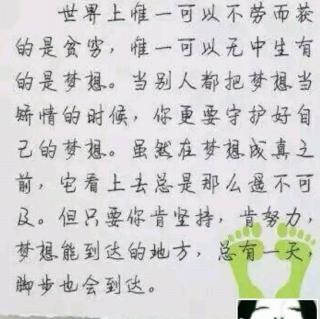 世界上惟一可以不劳而获
的是贫穷，惟一可以无中生有
的是梦想。当别人都把梦想当
矫情的时候，你更要守护好自
己的梦想。虽然在梦想成真之
前，它看上去总是那么遥不可
及。但只要你肯坚持，肯努力，
梦想能到达的地方，总有一天，
脚步也会到达。